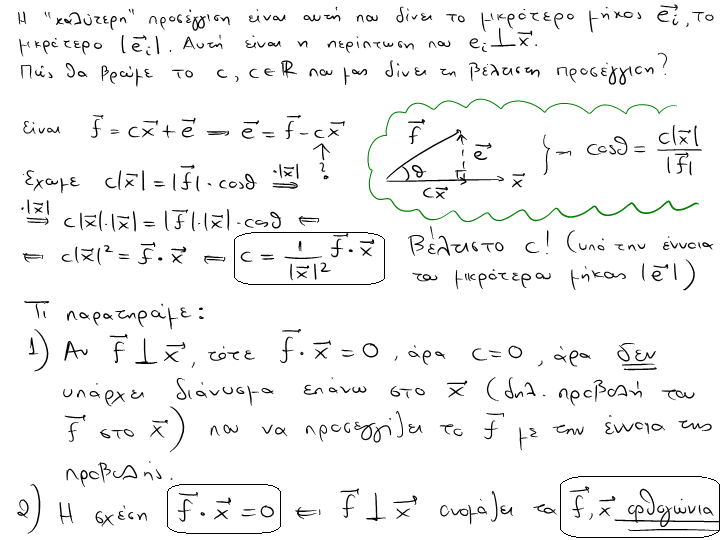 Η "καλύτερη" προσέγγιση είναι αυτή που δίνει το μικρότερο μήκος e⃗ᵢ, το
μικρότερο |e⃗ᵢ|. Αυτή είναι η περίπτωση που eᵢ ⊥ x⃗.
Πώς θα βρούμε το c, c∈ℝ που μας δίνει τη βέλτιστη προσέγγιση?
Είναι f⃗ = cx⃗ + e⃗ ⇒ e⃗ = f⃗ - cx⃗
?
f⃗
e⃗
θ
cx⃗
x⃗
} → cosθ = c|x⃗| / |f⃗|
Έχουμε c|x⃗| = |f⃗| · cosθ ·|x⃗| ⇒
·|x⃗| ⇒ c|x⃗|·|x⃗| = |f⃗|·|x⃗|·cosθ ⇐
⇐ c|x⃗|² = f⃗ · x⃗ ⇐ c = 1/|x⃗|² f⃗ · x⃗
Βέλτιστο c! (υπό την έννοια
του μικρότερου μήκους |e⃗|)
Τι παρατηρούμε:
1) Αν f⃗ ⊥ x⃗, τότε f⃗ · x⃗ = 0, άρα c = 0, άρα δεν
υπάρχει διάνυσμα επάνω στο x⃗ (δηλ. προβολή του
f⃗ στο x⃗) που να προσεγγίζει το f⃗ με την έννοια της
προβολής.
2) Η σχέση f⃗ · x⃗ = 0 ⇐ f⃗ ⊥ x⃗ ονομάζει τα f⃗, x⃗ ορθογώνια